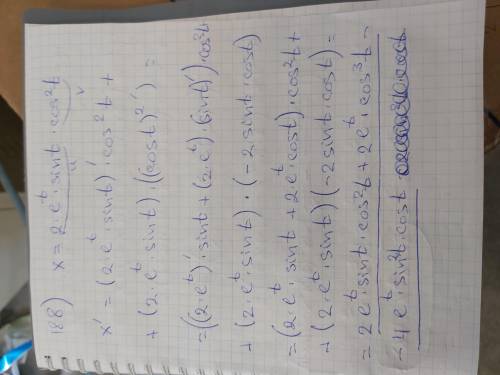 188) x = 2·e^t·sint·cos²t
u v
x' = (2·e^t·sint)'·cos²t +
+ (2·e^t·sint)·((cost)²') =
= ((2·e^t)'·sint + (2·e^t)·(sint)')·cos²t
+ (2·e^t·sint)·(-2sint·cost)
= (2·e^t·sint + 2e^t·cost)·cos²t +
+ (2·e^t·sint)(-2sint·cost) =
= 2e^t·sint·cos²t + 2e^t·cos³t -
- 4e^t·sin²t·cost